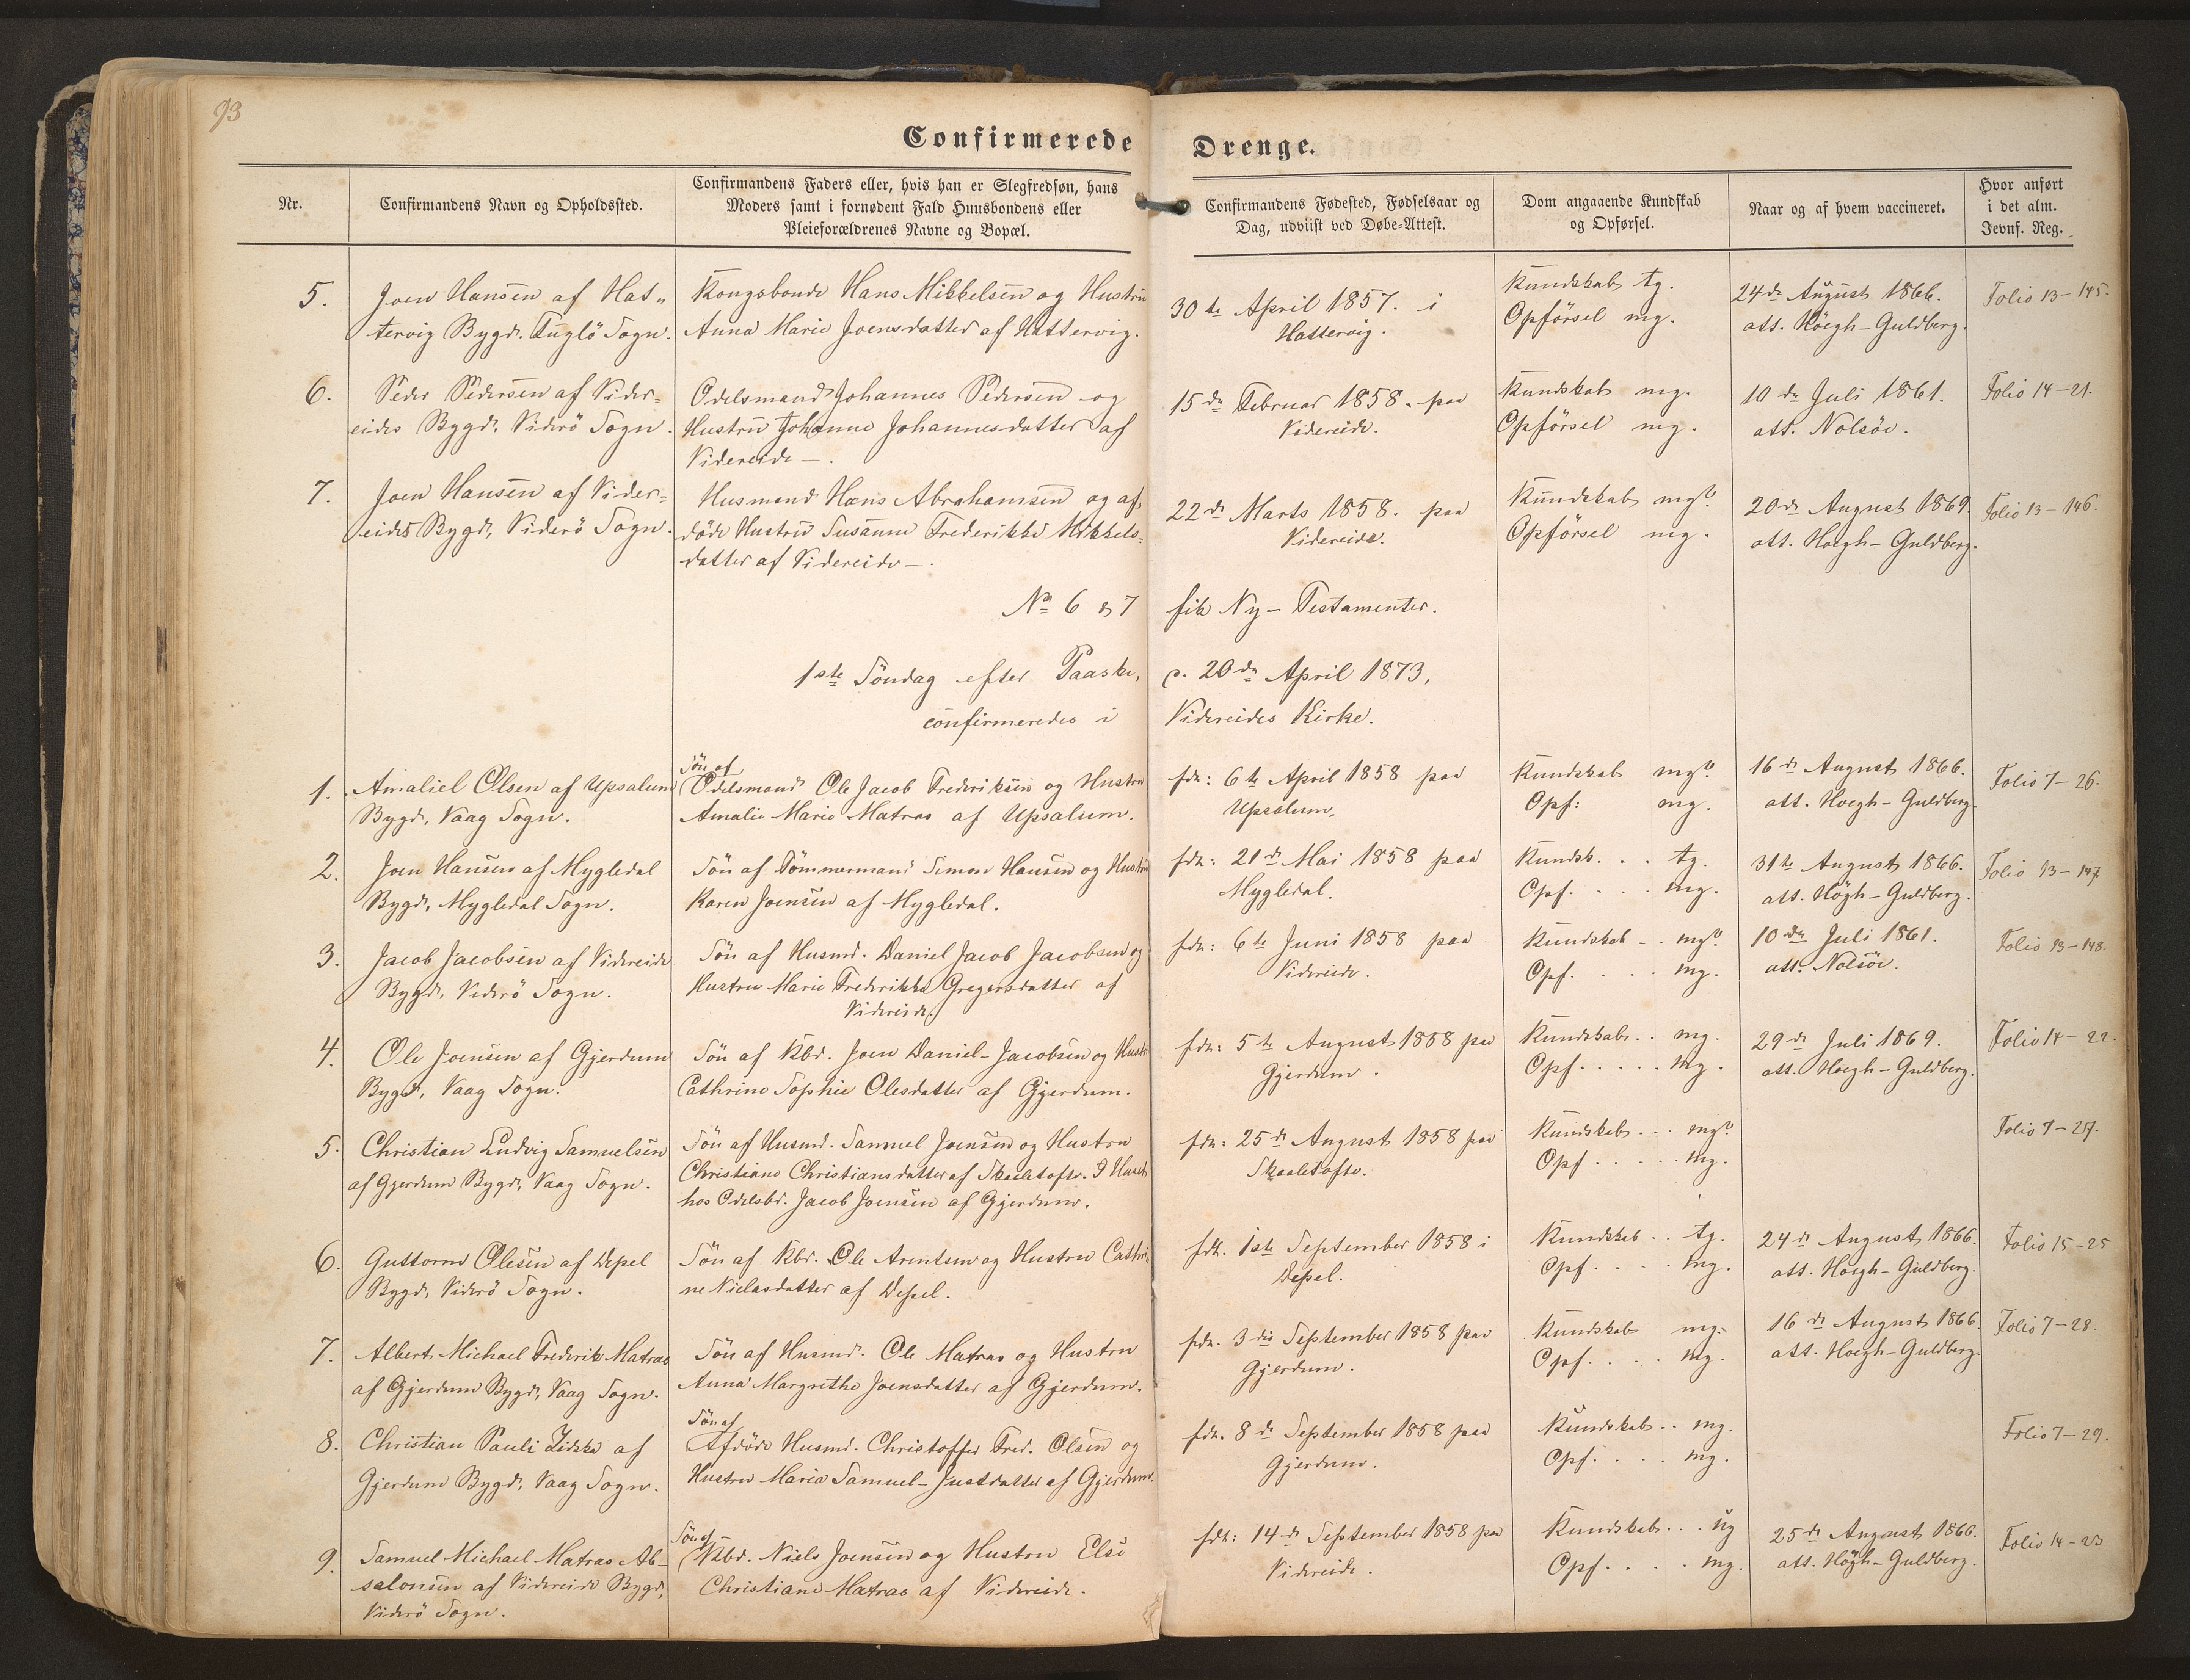 93
Confirmerede Drenge.
Nr.
Confirmandens Navn og Opholdssted.
Confirmandens Faders eller, hvis han er Slegfredsøn, hans
Moders samt i fornødent Fald Huusbondens eller
Pleieforældrenes Navne og Bopæl.
Confirmandens Fødested, Fødselsaar og
Dag, udviist ved Døbe-Attest.
Dom angaaende Kundskab
og Opførsel.
Naar og af hvem vaccineret.
Hvor anført
i det alm.
Jevnf. Reg.
5.
Joen Hansen af Hat-
tervig Bygd. Fuglö Sogn.
Kongsbonde Hans Mikkelsen og Hustru
Anna Marie Joensdatter af Hattervig.
30te April 1857. i
Hattervig.
Kundskab tg.
Opförsel mg.
24de August 1866.
att. Höegh-Guldberg.
Folio 13-145.
6.
Peder Pedersen af Vider-
eides Bygd. Viderö Sogn.
Odelsmand Johannes Pedersen og
Hustru Johanne Johannesdatter af
Videreide-.
15de Februar 1858. paa
Videreide.
Kundskab mg.
Opförsel mg.
10de Juli 1861.
att. Nolsöe.
Folio 14-21.
7.
Joen Hansen af Vider-
eides Bygd, Viderö Sogn.
Husmand Hans Abrahamsen og af-
döde Hustru Susanne Frederikke Mikkels-
datter af Videreide-.
22de Marts 1858. paa
Videreide.
Kundskab mg?
Opförsel mg.
20de August 1869.
att. Hoegh-Guldberg.
Folio 13-146.
No 6 og 7 fik Ny-Testamenter.
1ste Söndag efter Paaske, d. 20de April 1873,
confirmeredes i Videreides Kirke.
1.
Amaliel Olsen af Upsalum
Bygd, Vaag Sogn.
Sön af
Odelsmand Ole Jacob Frederiksen og Hustru
Amalie Marie Matras af Upsalum.
fdt: 6te April 1858 paa
Upsalum.
Kundskab mg?
Opf: mg.
16de August 1866.
att. Hoegh-Guldberg.
Folio 7-26.
2.
Joen Hansen af Mygledal
Bygd, Mygledal Sogn.
Sön af Tömmermand Simon Hansen og Hustru
Karen Joensen af Mygledal.
fdt: 21de Mai 1858 paa
Mygledal.
Kundsk. . . tg.
Opf. . . . mg.
31te August 1866.
att. Högh-Guldberg.
Folio 13-147
3.
Jacob Jacobsen af Videreide
Bygd, Viderö Sogn.
Sön af Husmd. Daniel Jacob Jacobsen og
Hustru Marie Frederikke Gregersdatter af
Videreide.
fdt: 6te Juni 1858 paa
Videreide.
Kundskab . . mg?
Opf. . . . mg.
10de Juli 1861.
att. Nolsöe.
Folio 13-148.
4.
Ole Joensen af Gjerdum
Bygd, Vaag Sogn.
Sön af Kbd. Joen Daniel-Jacobsen og Hustru
Cathrine Sophie Olesdatter af Gjerdum.
fdt: 5te August 1858 paa
Gjerdum.
Kundskab. . mg.
Opf. . . . . mg.
29de Juli 1869.
att. Hoegh-Guldberg.
Folio 14-22.
5.
Christian Ludvig Samuelsen
af Gjerdum Bygd, Vaag Sogn.
Sön af Husmd. Samuel Joensen og Hustru
Christiane Christiansdatter af Skaaletofte. I Huset
hos Odelsbd. Jacob Joensen af Gjerdum.
fdt: 25de August 1858 paa
Skaaletofte.
Kundskab. . . mg?
Opf . . . . . mg.
Folio 7-27.
6.
Guttorm Olesen af Depel
Bygd, Viderö Sogn.
Sön af Kbd. Ole Arentsen og Hustru Cathri-
ne Niclasdatter af Depel.
fdt. 1ste September 1858 i
Depel.
Kundskab . . tg.
Opf. . . . mg.
24de August 1866.
att. Hoegh-Guldberg.
Folio 15-25
7.
Albert Michael Frederik Matras
af Gjerdum Bygd, Vaag Sogn.
Sön af Husmd. Ole Matras og Hustru
Anna Margrethe Joensdatter af Gjerdum.
fdt. 3die September 1858 paa
Gjerdum.
Kundskab mg.
Opf. . . . mg.
16de August 1866.
att. Hoegh-Guldberg.
Folio 7-28.
8.
Christian Pauli Ziska af
Gjerdum Bygd, Vaag Sogn.
Sön af
Afdöde Husmd. Christoffer Fred. Olsen og
Hustru Maria Samuel-Justdatter af Gjerdum.
fdt. 8de September 1858 paa
Gjerdum.
Kundskab . . mg.
Opf. . . . mg.
Folio 7-29.
9.
Samuel Michael Matras Ab-
salonsen af Videreide Bygd,
Viderö Sogn.
Sön af
Kbd. Niels Joensen og Hustru Else
Christiane Matras af Videreide.
fdt: 14de September 1858 paa
Videreide.
Kundskab. . . ug
Opf. . . . mg.
25de August 1866.
att. Högh-Guldberg.
Folio 14-23